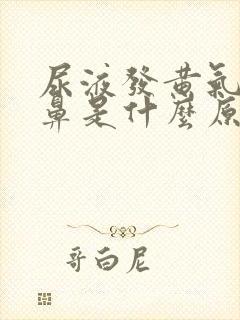 尿液發黃氣
鼻是什麼原
哥白尼